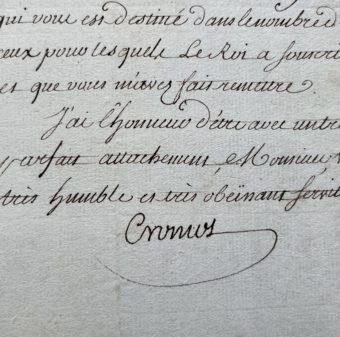 qui vous est destiné dans le nombre d
ceux pour lesquels Le Roi a souscrit
et que vous m'avez fait remettre.
J'ai l'honneur d'être avec un trè
parfait attachement, Monsieur, v
très humble et très obéissant servit
Cromot